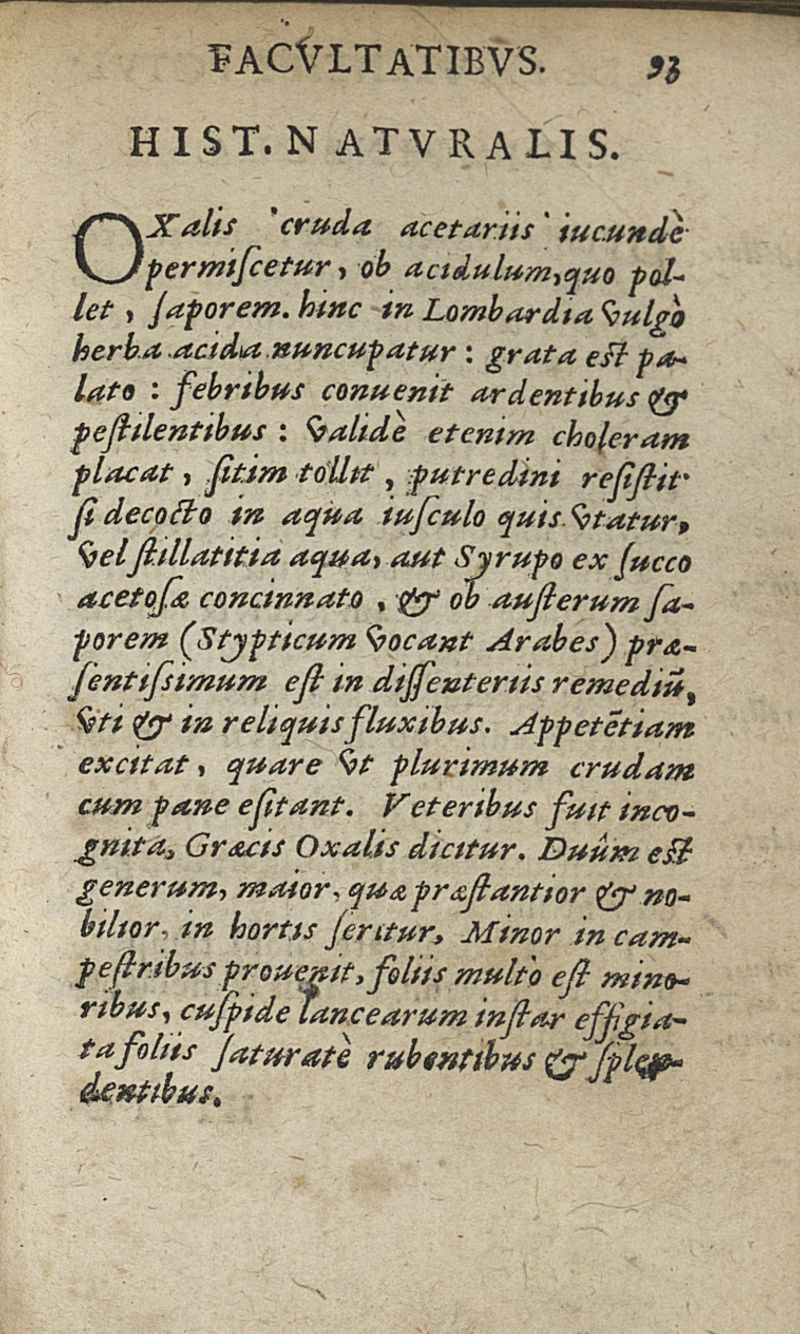 FACVLTATIBVS. 93
HIST. NATVRALIS.
OXalis cruda acetariis iucundè
permiſcetur, ob acidulum, quo pol-
let, ſaporem. hinc in Lombardia vulgò
herba acida nuncupatur: grata eſt pa-
lato: febribus conuenit ardentibus &
peſtilentibus: validè etenim choleram
placat, ſitim tollit, putredini reſiſtit
ſi decocto in aqua iuſculo quis vtatur,
vel ſtillatitia aqua, aut Syrupo ex ſucco
acetoſæ concinnato, & ob auſterum ſa-
porem (Stypticum vocant Arabes) præ-
ſentiſsimum eſt in diſſenteriis remediū,
vti & in reliquis fluxibus. Appetētiam
excitat, quare vt plurimum crudam
cum pane eſitant. Veteribus fuit inco-
gnita, Græcis Oxalis dicitur. Duûm eſt
generum, maior, quæ præſtantior & no-
bilior, in hortis ſeritur, Minor in cam-
peſtribus prouenit, foliis multò eſt mino-
ribus, cuſpide lancearum inſtar effigia-
ta foliis ſaturatè rubentibus & ſplen-
dentibus.